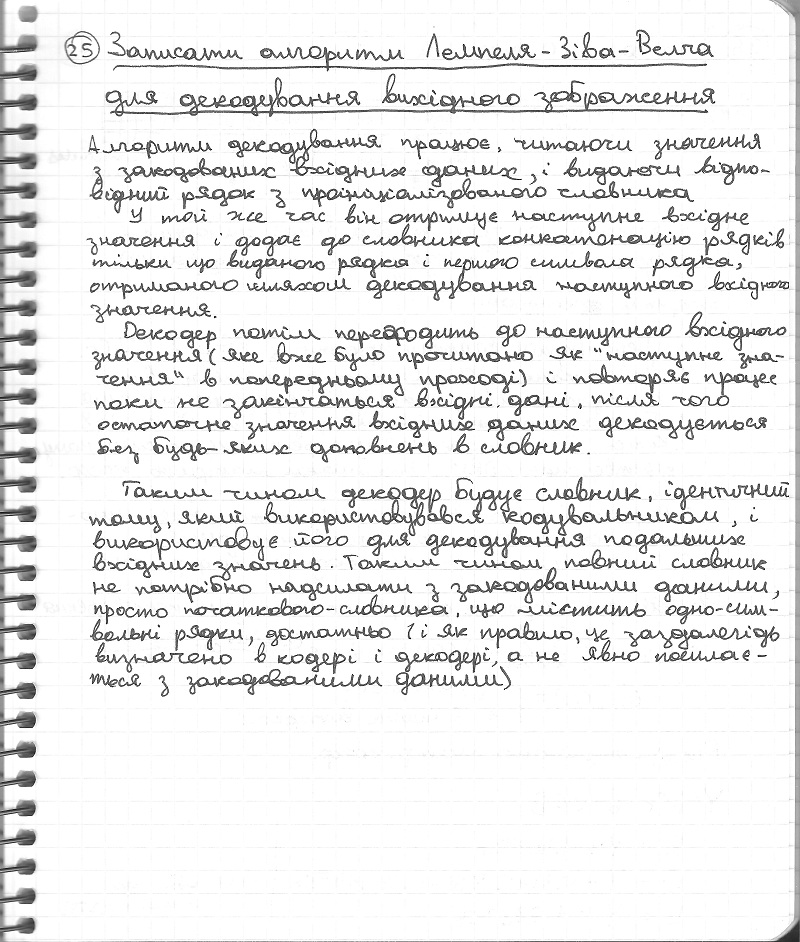 25 Записати алгоритм Лемпеля-Зіва-Велча
для декодування вихідного зображення
Алгоритм декодування працює, читаючи значення
з закодованих вхідних даних, і видаючи відпо-
відний рядок з проініціалізованого словника
У той же час він отримує наступне вхідне
значення і додає до словника конкатенацію рядків
тільки що виданого рядка і першого символа рядка,
отриманого шляхом декодування наступного вхідного
значення.
Декодер потім переходить до наступного вхідного
значення (яке вже було прочитано як "наступне зна-
чення" в попередньому проході) і повторяє процес
поки не закінчаться вхідні дані, після чого
остаточне значення вхідних даних декодується
без будь-яких доповнень в словник.
Таким чином декодер будує словник, ідентичний
тому, який використовувався кодувальником, і
використовує його для декодування подальших
вхідних значень. Таким чином повний словник
не потрібно надсилати з закодованими даними,
просто початкового-словника, що містить одно-сим-
вольні рядки, достатньо (і як правило, це заздалегідь
визначено в кодері і декодері, а не явно посилає-
ться з закодованими даними)